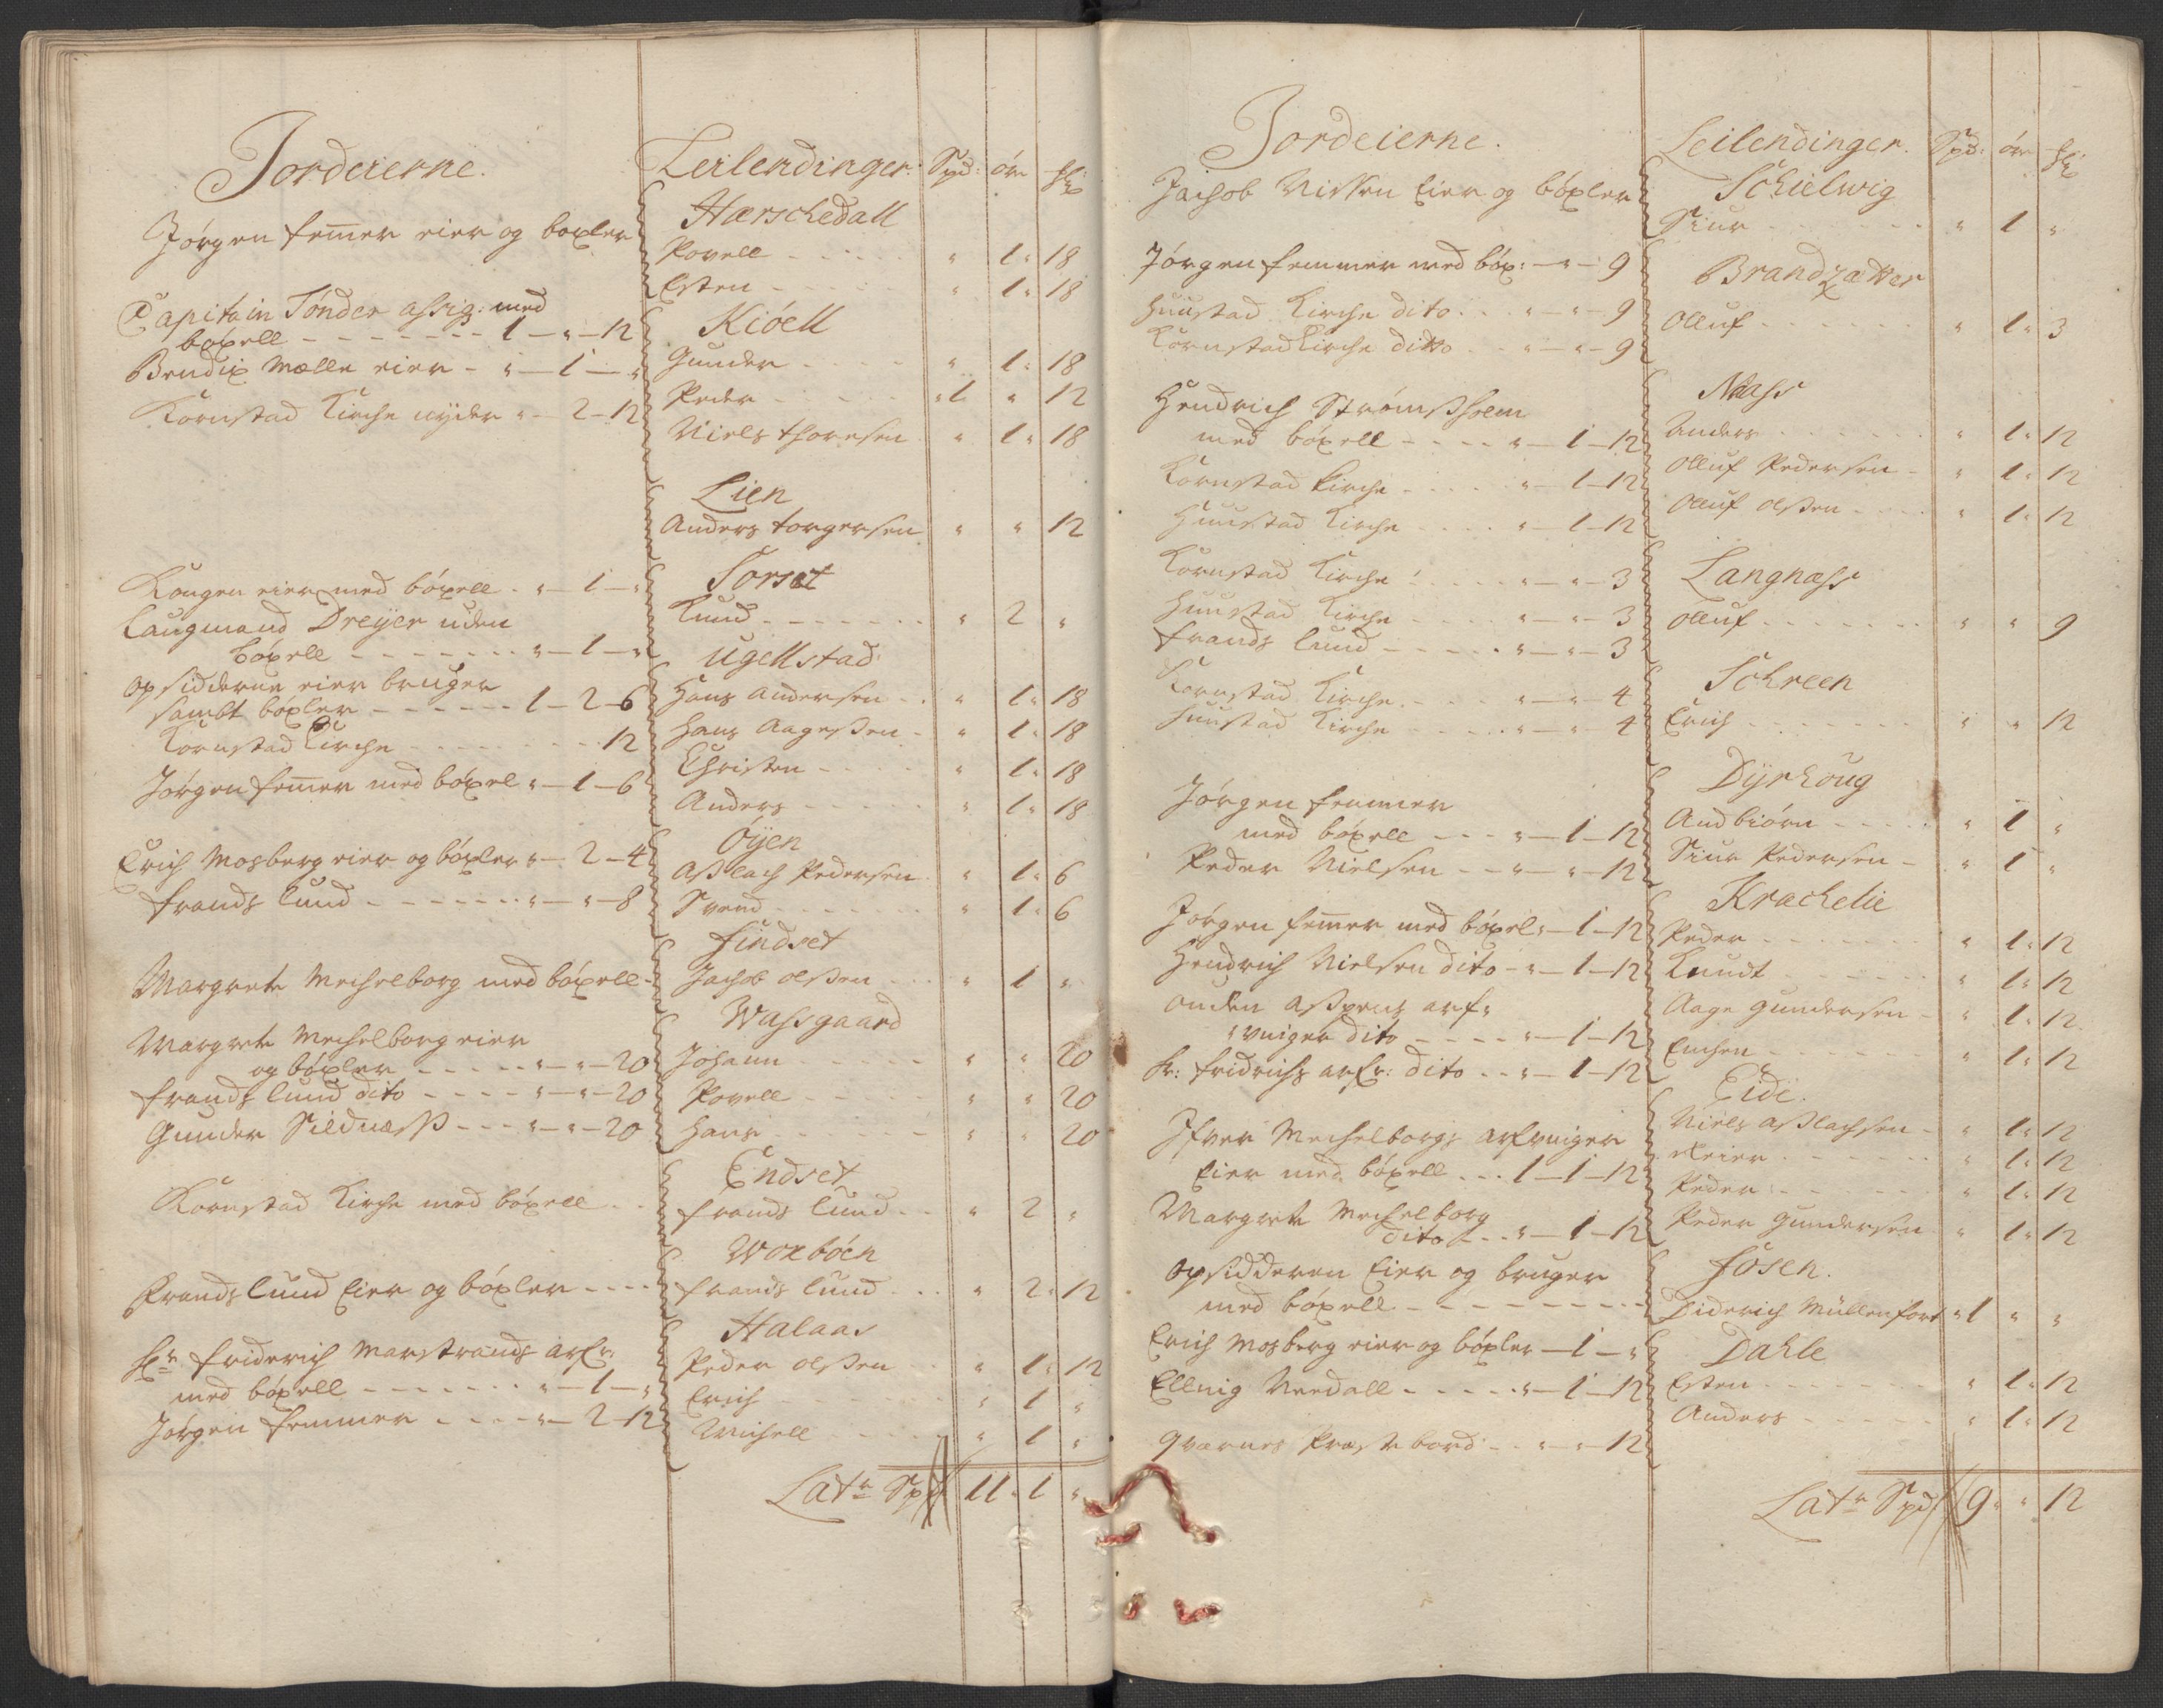 Jordeierne.
Jørgen femer eier og boxler
Capitain Tønder assig: med
böxell - - - - - - 1 - " - 12
Bendix Mælle eier - " - 1 - "
Kornstad Kirche nyder " - 2 - 12
Kongen eier med böxell - " - 1 - "
Laugmand Dreÿer uden
böxell - - - - - - " - 1 - "
opsidderne eier bruger
sambt boxler - - - - - 1 - 2 - 6
Kornstad Kirche - - - - - 12
Jørgen femer med böxel " - 1 - 6
Erich Mosberg eier og böxler " - 2 - 4
frands Lund - - - - - " - " - 8
Margrete Mechelborg med böxell -
Margrete Mechelborg eier
og böxler - - - - - " - " - 20
frands Lund dito - - - - " - " - 20
Gunder Sildnæss - - - " - " - 20
Kornstad Kirche med böxell - -
Frands Lund Eier og böxler - - - -
Hr friderich Marstrands arfr:
med böxell - - - - - - " - 1 - "
Jørgen femmer - - - - " - 2 - 12
Leilendinger: Spd: öre Mk
Harschedall
Povell - - - - - " 1 " 18
Esten - - - - - " 1 " 18
Kiöell
Gunder - - - - " 1 " 18
Peder - - - - - " 1 " 12
Niels thoresen " 1 " 18
Lien
Anders torgersen " " 12
Torset
Knud - - - - - - " 2 "
Ugellstad
Hans Andersen - - " 1 " 18
Hans Aagessen - " 1 " 18
Christen - - - - " 1 " 18
Anders - - - - - " 1 " 18
Öÿen
Asslach Pedersen " 1 " 6
Svend - - - - - " 1 " 6
findset
Jachob olssen - - - " 1 "
Wassgaard
Johann - - - - - " " 20
Povell - - - - - " " 20
Hans - - - - - - " " 20
Endset
frands Lund - - " 2 "
Woxböen
frands Lund - - - " 2 " 12
Halaas
Peder olssen - - " 1 " 12
Erich - - - - - " 1 "
Michell - - - - " 1 "
Latr Spd 11 " 1 "
Jordeierne.
Jachob Nissen Eier og böxler
Jørgen femmer med böx: - " - 9
Huustad Kirche dito - - " - " - 9
Kornstad Kirche ditto - - " - " - 9
Hendrich Strømssholm
med böxell - - - - " - 1 - 12
Kornstad kirche - - - - " - 1 - 12
Huustad Kirche - - - - " - 1 - 12
Kornstad Kirche - - - - " - " - 3
Huustad Kirche - - - - " - " - 3
frands Lund - - - - - " - " - 3
Kornstad Kirche - - - - " - " - 4
Huustad Kirche - - - - - " - " - 4
Jørgen femmer
med böxell - - - " - 1 - 12
Peder Nielsen - - - " - " - 12
Jørgen femer med böxel " - 1 - 12
Hendrich Nielsen dito - " - 1 - 12
arf"
"vinger dito - - - - " - 1 - 12
Hr: fridrichs arfr: dito - - " - 1 - 12
Ifver Mechelborgs arfvinger
Eier med böxell - - - 1 - 1 - 12
Margrete Mechelborg
dito - - - " - 1 - 12
opsidderen Eier og bruger
med böxell - - - - - - -
Erich Mosberg eier og böxler - 1 - "
Ellnig Nerdall - - - - - " - 1 - 12
qvernes Præstebord - - " - " - 12
Leilendinger. Spd: öre Mk
Schielwig
Siur - - - - - - - " 1 "
Brandzætter
Olluf - - - - - - " 1 " 3
Næss
Anders - - - - - - " 1 " 12
Olluf Pedersen - " 1 " 12
Olluf olssen - - - - " 1 " 12
Langnæss
Olluf - - - - - - - " " 9
Schreen
Erich - - - - - - - " " 12
Dÿrhoug
Andbiörn - - - - - " 1 "
Siur Pedersen - - " 1 "
Krachelie
Peder - - - - - - - " 1 " 12
Knudt - - - - - - " 1 " 12
Aage gundersen - " 1 " 12
- - - - - - " 1 " 12
Eide.
Niels Asslachsen - " 1 " 12
Reier - - - - - - - " 1 " 12
Peder - - - - - - - " 1 " 12
Peder Gundersen " 1 " 12
fosen.
Diderich Müllenfort " 1 " "
Dahle
Esten - - - - - - - " 1 " 12
Anders - - - - - " 1 " 12
Latr Spd 9 " " 12